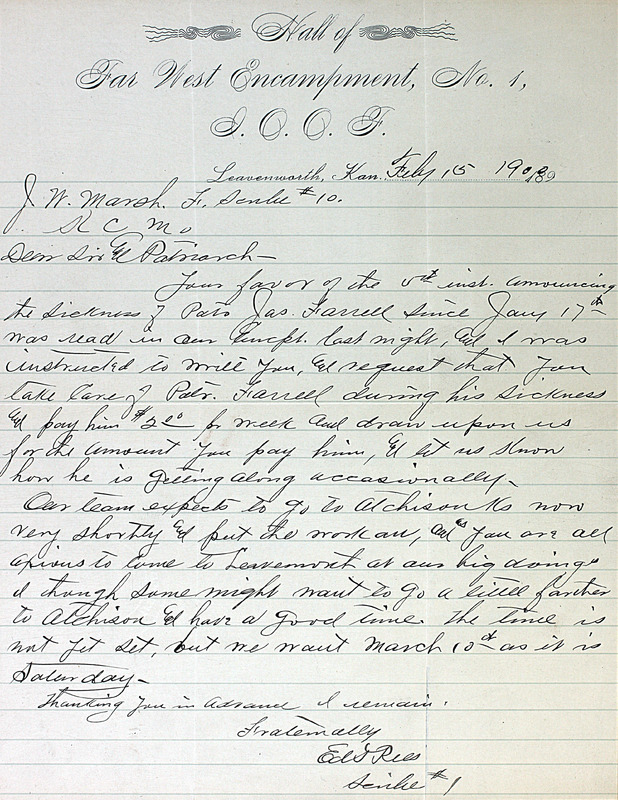 Hall of
Far West Encampment, No. 1,
I. O. O. F.
Leavenworth, Kan. Feby 15 190
J. W. Marsh. F. Scribe #10.
K C Mo
Dear Sir & Patriarch—
Your favor of the 5th inst. announcing
the sickness of Patr Jas. Farrell since Jany 17th
was read in our Encpt. last night, & I was
instructed to write you, & request that you
take care of Patr. Farrell during his sickness
& pay him $2.00 pr week and draw upon us
for the amount you pay him, & let us know
how he is getting along accasionally.
Our team expects to go to Atchison Ks now
very shortly & put the work on, and as you are all
to come to Leavenwort at our big doings
I though some might want to go a little farther
to Atchison & have a good time. The time is
not yet set, but we want March 10th as it is
Saturday—
Thanking you in advance I remain.
Fraternally
Ed Rees
Scribe #1